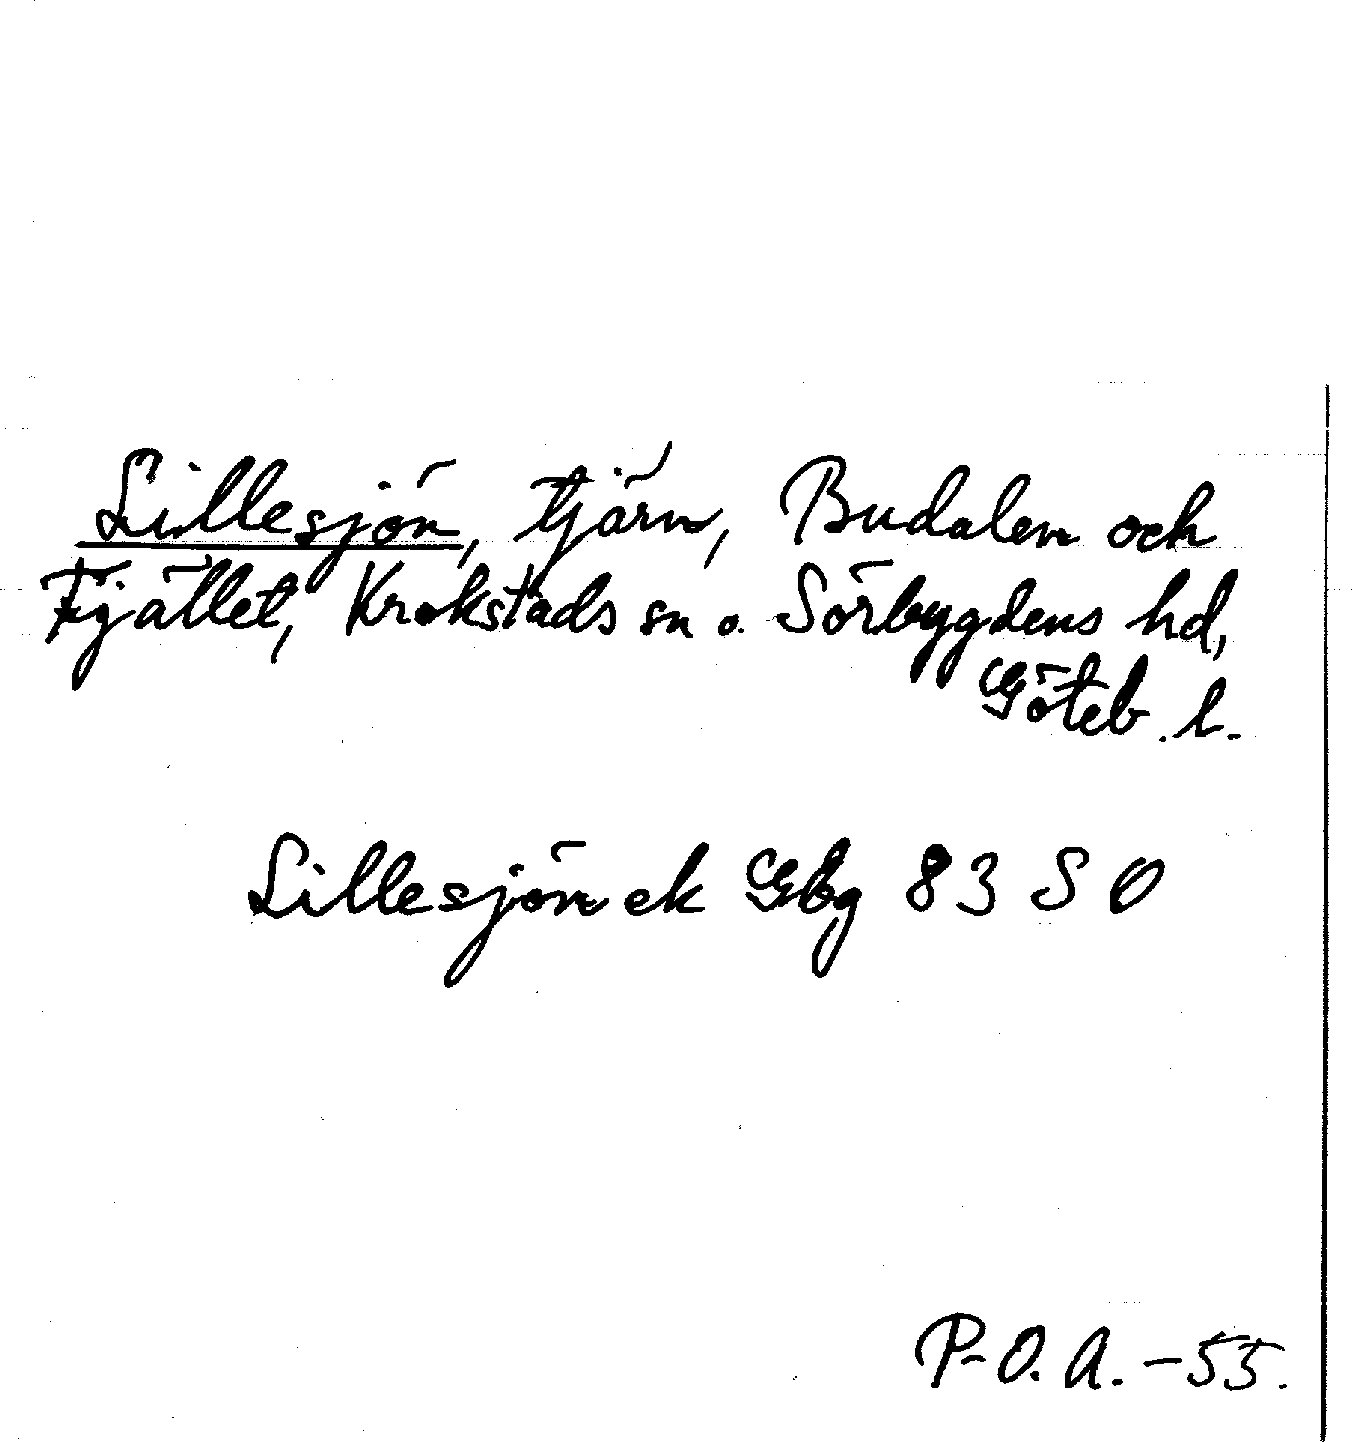 Lillesjön, tjärn, Budalen och
Fjället, Krokstads sn o. Sörbygdens hd,
Göteb. l.
Lillesjön ek Gbg 83 SO
P-O. A. -55.